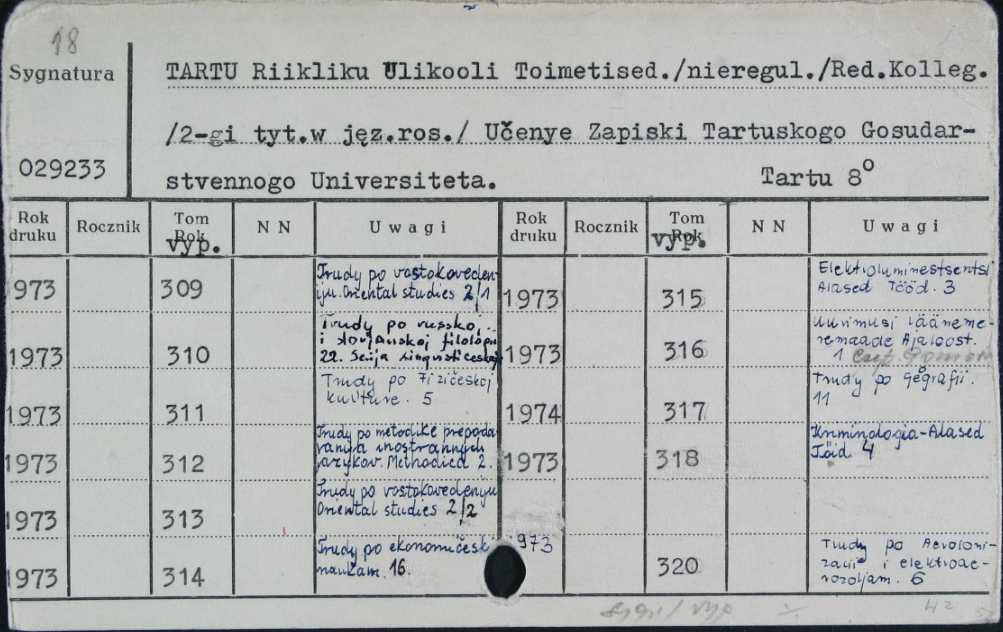 18
Sygnatura
029233
TARTU Riikliku Ulikooli Toimetised./nieregul./Red.Kolleg.
/2-gi tyt.w jęz.ros./ Učenye Zapiski Tartuskogo Gosudar-
stvennogo Universiteta. Tartu 8°
Rok druku Rocznik Tom Rok vyp. NN Uwagi Rok druku Rocznik Tom Rok vyp. NN Uwagi
973 309 Trudy po vostokoveden
iju. Oriental studies 2/1
1973 310 Trudy po russkoj
i slovjanskoj filologii
22. Serija lingvističeskaj
1973 311 Trudy po fizičeskoj
kulture. 5
1973 312 Trudy po metodike prepoda
vanija inostrannych
jazykov. Methodica 2.
1973 313 Trudy po vostokovedenyu
Oriental studies 2/2
1973 314 Trudy po ekonomičesk
naukam. 16.
1973 315 Elektroluminestsentsi
Alased Tööd. 3
1973 316 Uurimusi Lääneme-
remaade Ajaloost.
1
1974 317 Trudy po geografii.
11
1973 318 Kriminoloogia-Alased
Tööd 4
973 320 Trudy po Aeroioni-
zacii i elektroae-
rozoljam. 6
42